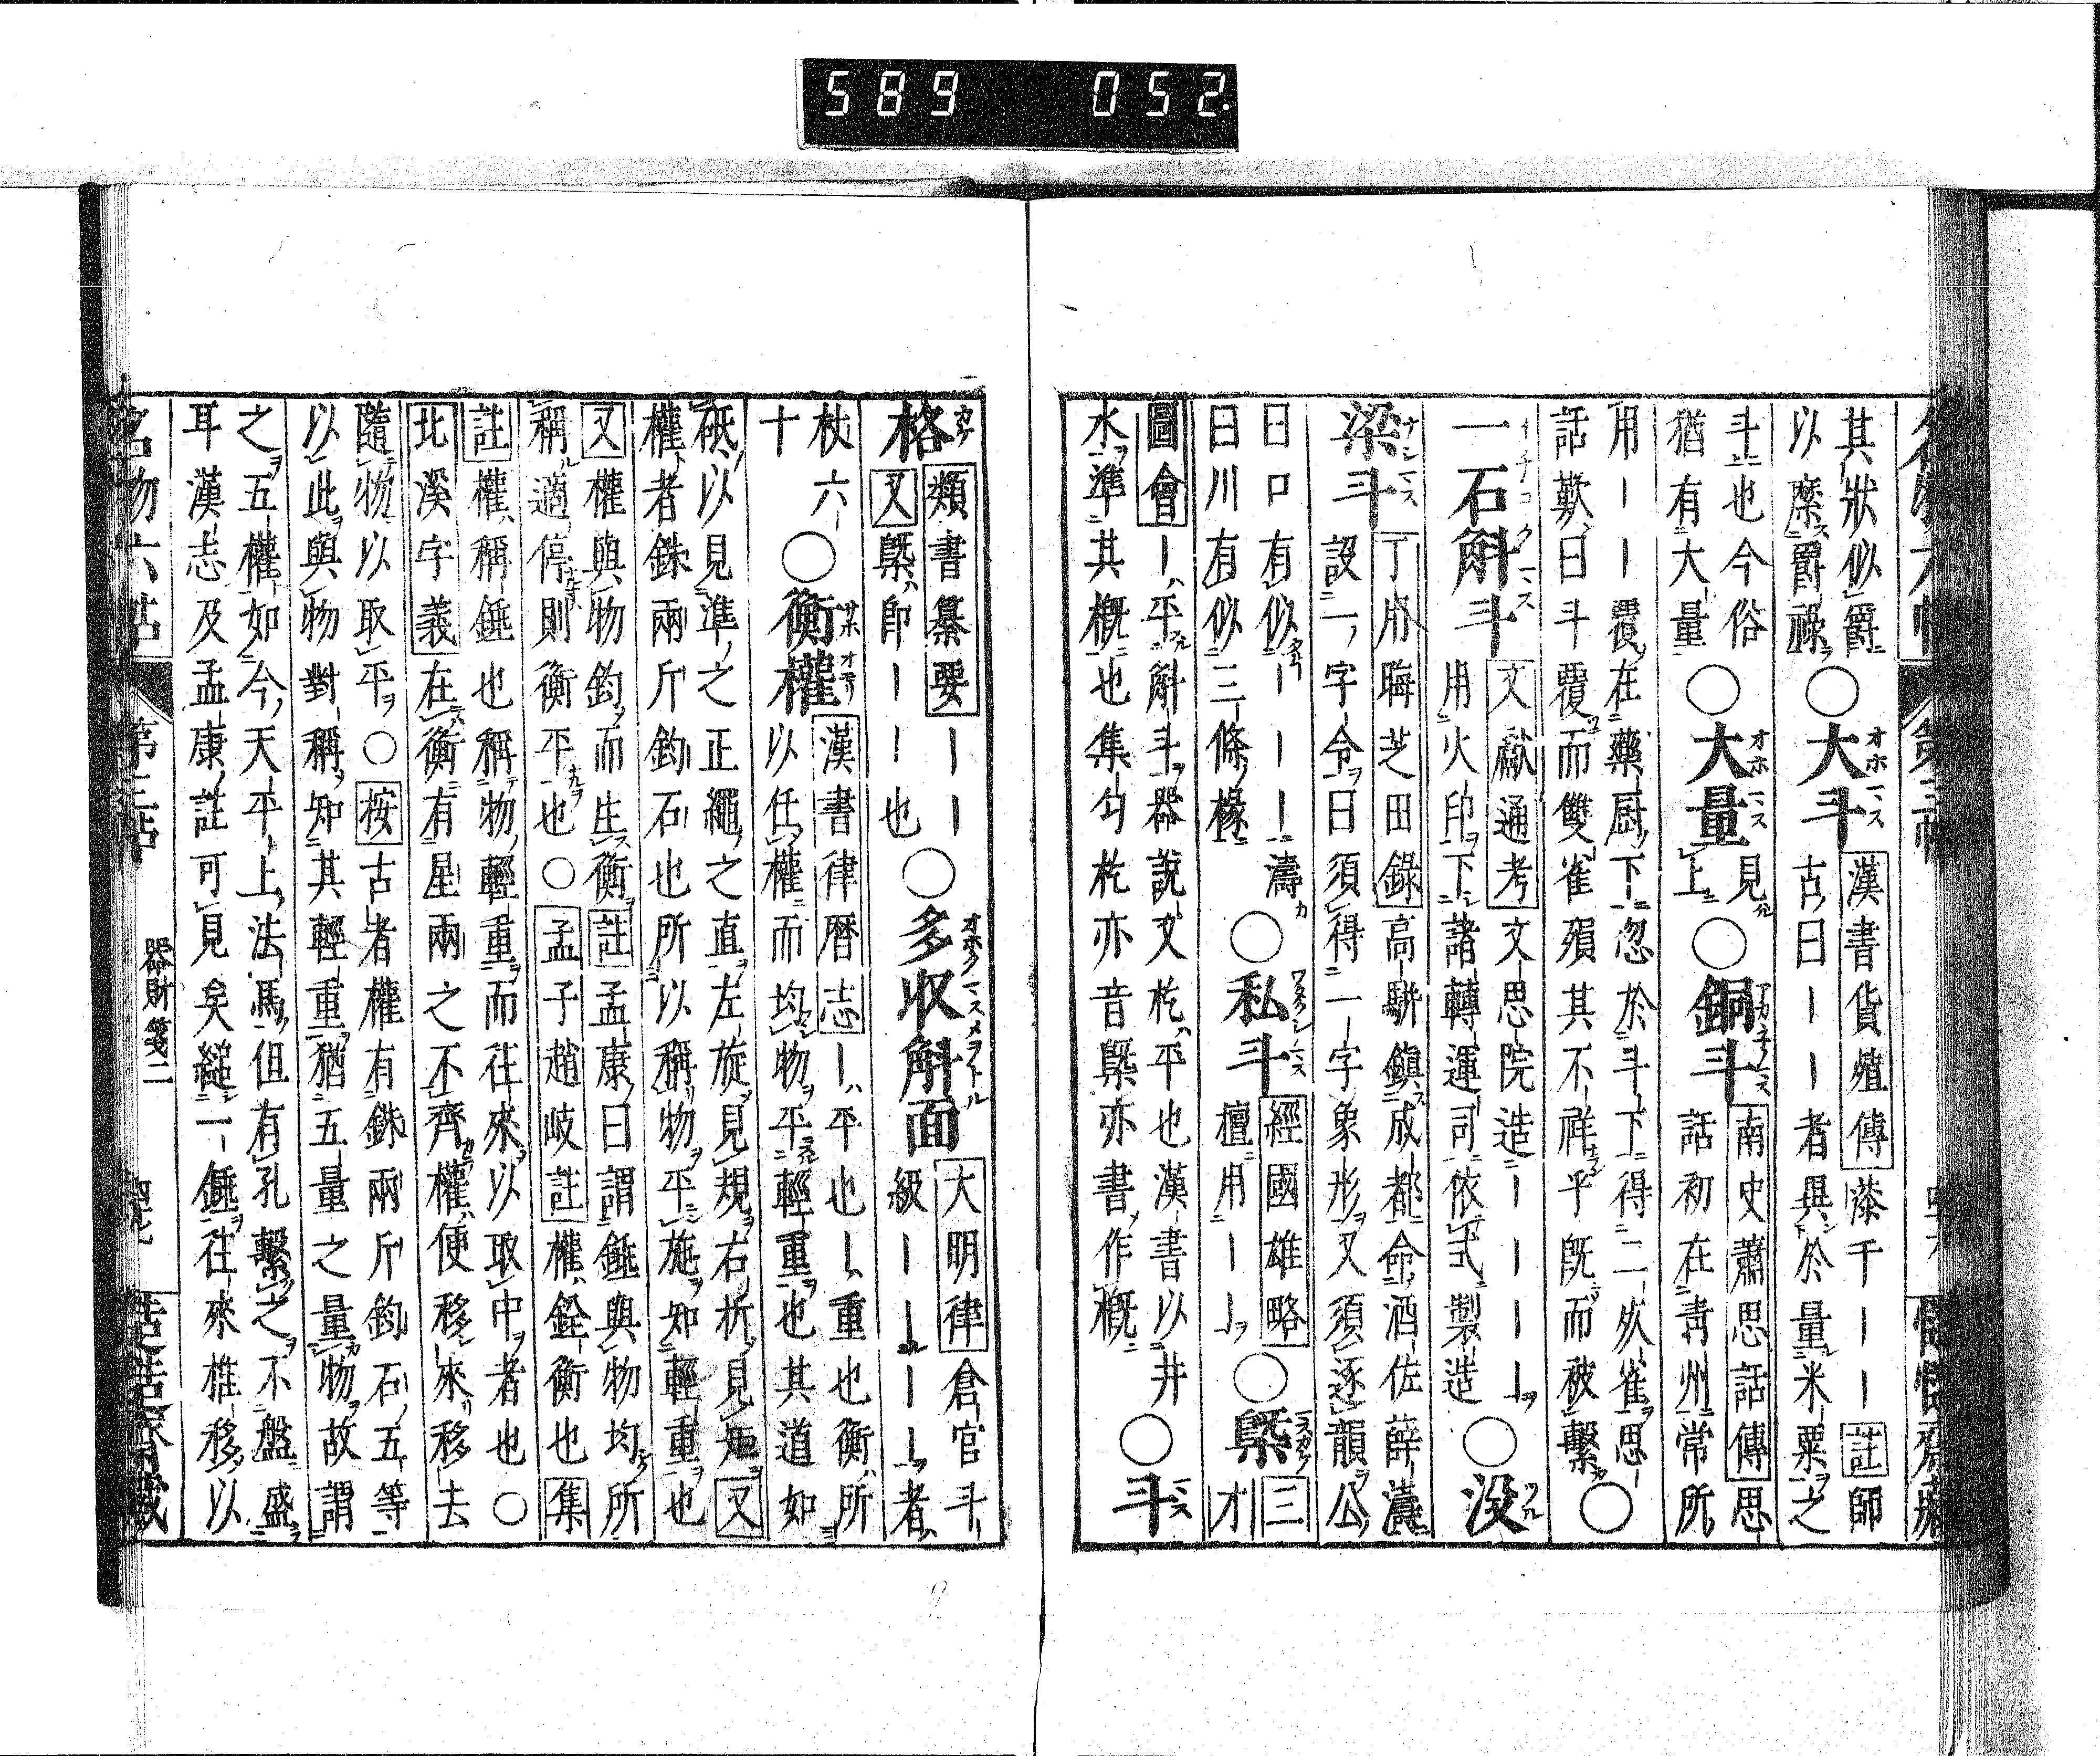 589 052
其狀似爵
以縻爵祿○大斗漢書貨殖傳漆千――註師
古曰――者異於量米粟之
斗也今俗
猶有大量○大量見上○銅斗南史蕭思話傳思
話初在靑州常所
用――覆在藥厨下忽於斗下得二死雀思
話歎曰斗覆而雙雀殞其不祥乎既而被繫○
一石斛斗文獻通考文思院造――――
用火印下諸轉運司依式製造○没
梁斗丁用晦芝田錄高駢鎮成都命酒佐薛濤
設一字令曰須得一字象形又須逐韻公
曰口有似―――濤
曰川有似三條椽○私斗經國雄略
擅用――○槩三才
圖會―平斛斗器說文杚平也漢書以井
水準其概也集勻杚亦音槩亦書作概○斗
格類書纂要――
又槩即――也○多收斛面大明律倉官斗
級――――者
杖六
十○衡權漢書律曆志―平也―重也衡所
以任權而均物平輕重也其道如
砥以見準之正繩之直左旋見規右折見矩又
權者銖兩斤鈞石也所以稱物平施知輕重也
又權與物鈞而生衡註孟康曰謂錘與物均所
稱適停則衡平也○孟子趙岐註權銓衡也集
註權稱錘也稱物輕重而往來以取中者也○
北溪字義在衡有星兩之不齊權便移來移去
隨物以取平○按古者權有銖兩斤鈞石五等
以此與物對稱知其輕重猶五量之量物故謂
之五權如今天平上法馬但有孔繫之不盤盛
耳漢志及孟康註可見矣縋一錘往來椎移以
名物六帖 第三帖 器財箋二